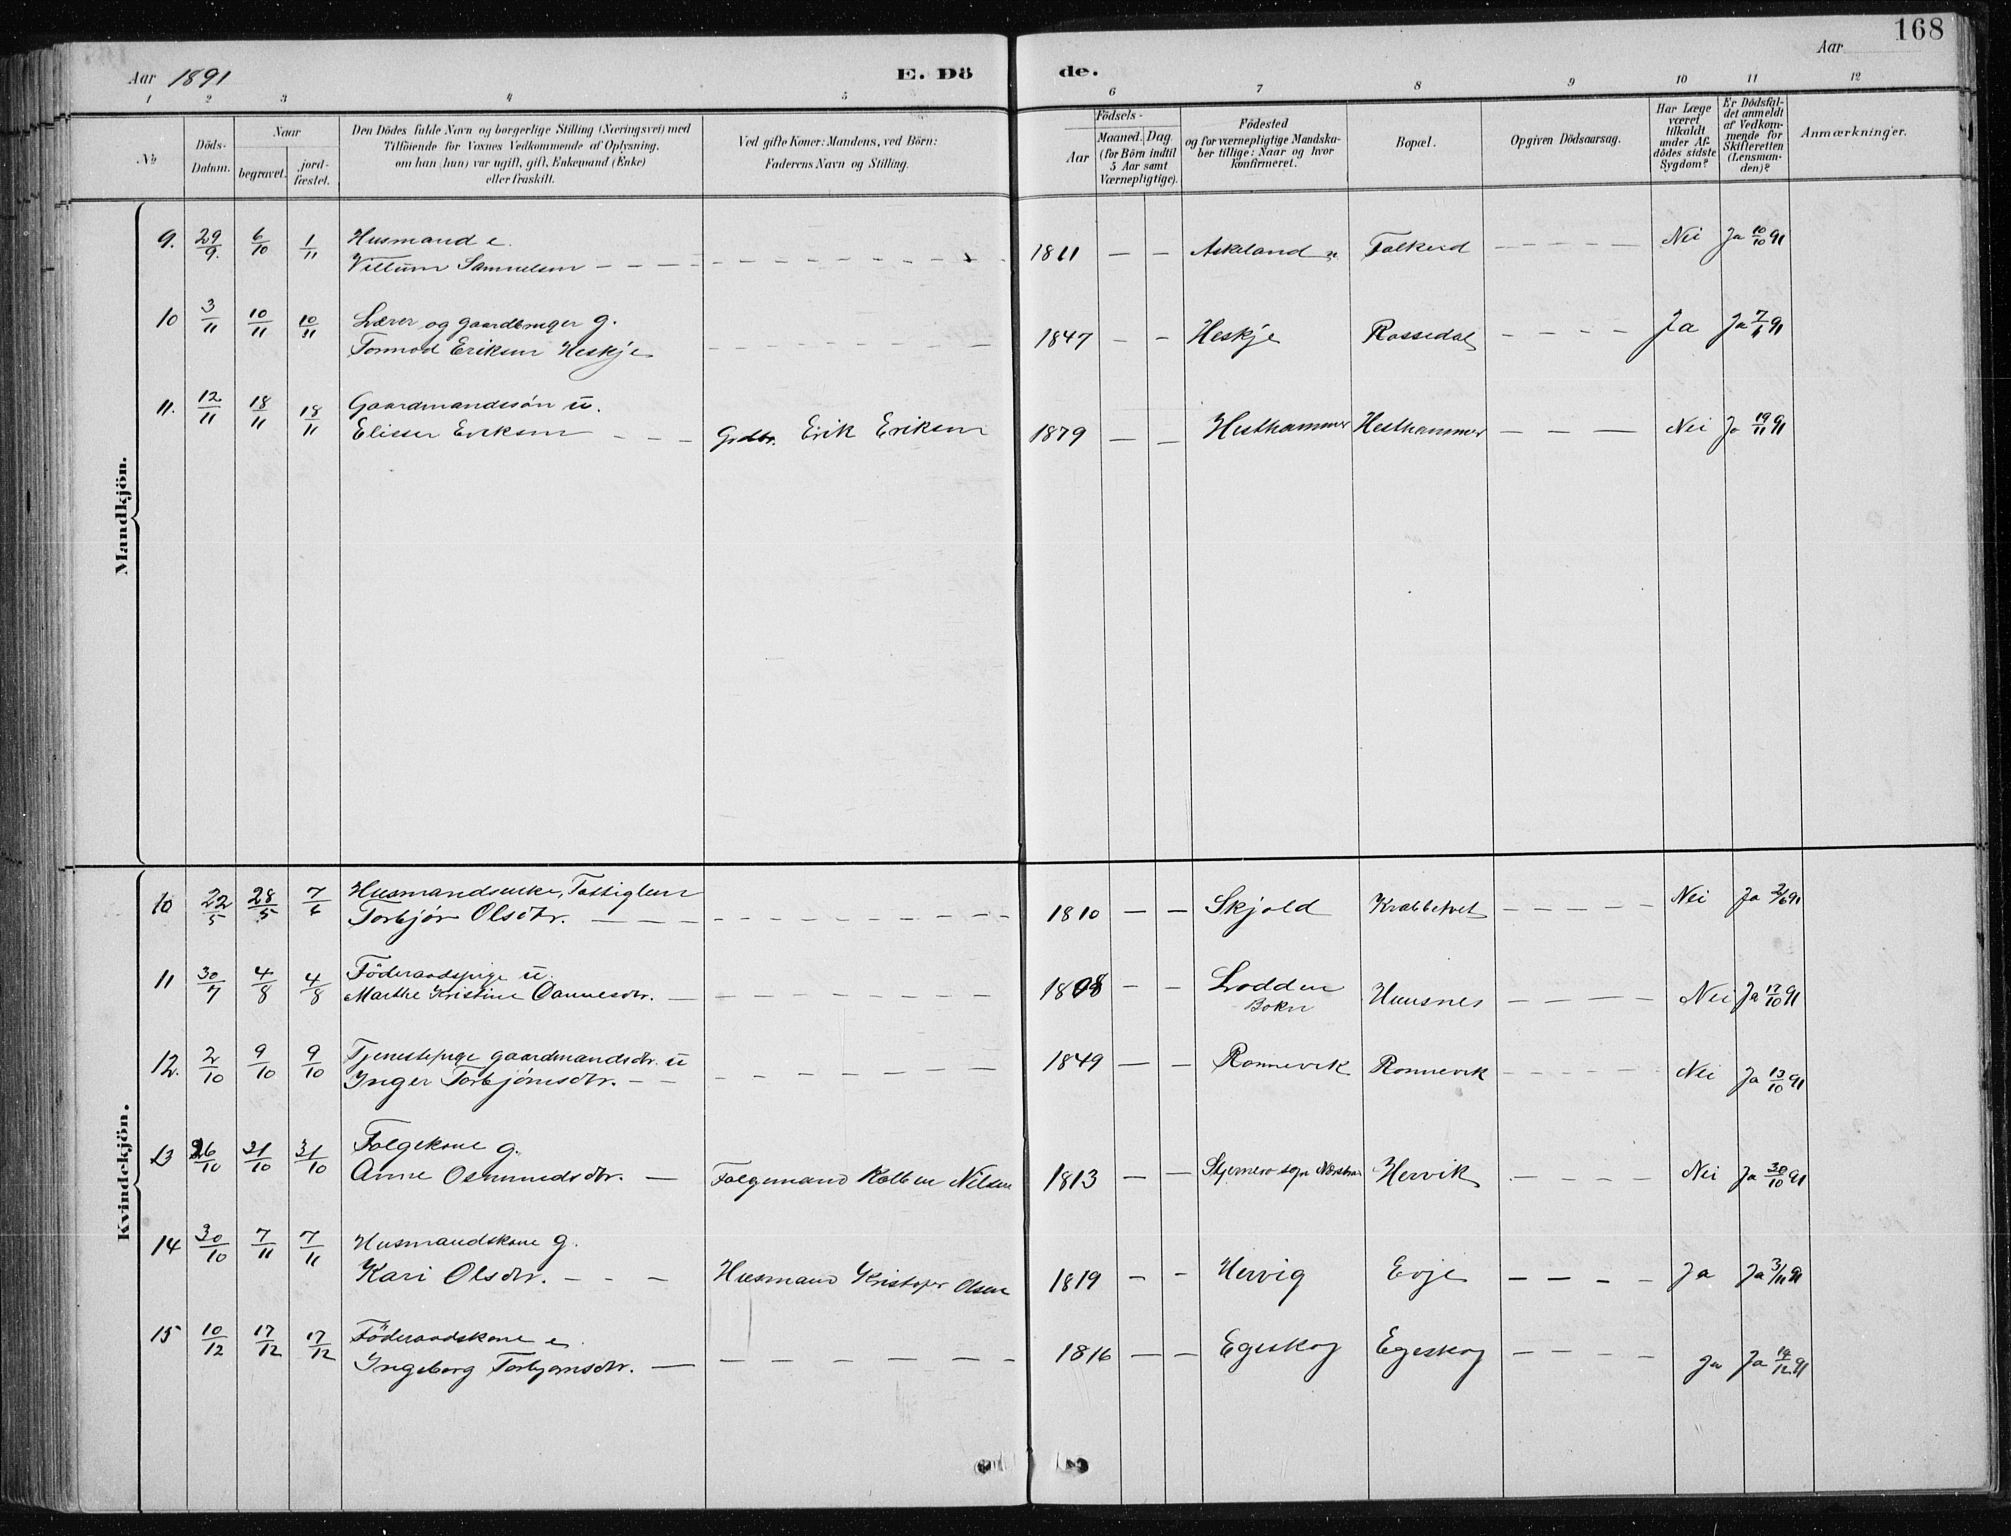 168
Aar 1891
E. Dö
de.
Aar
1 2 3 4 5 6 7 8 9 10 11 12
No
Döds-Datum.
Naar
begravet.
jord-fæstet.
Den Dödes fulde Navn og borgerlige Stilling (Næringsvei) med
Tilföiende for Voxnes Vedkommende af Oplysning,
om han (hun) var ugift, gift, Enkemand (Enke)
eller fraskilt.
Ved gifte Koner: Mandens, ved Börn:
Faderens Navn og Stilling.
Födsels-
Aar
Maaned. Dag.
(for Börn indtil
5 Aar samt
Værnepligtige).
Födested
og for værnepligtige Mandska-
ber tillige: Naar og hvor
konfirmeret.
Bopæl.
Opgiven Dödsaarsag.
Har Læge
været
tilkaldt
under Af-
dödes sidste
Sygdom?
Er Dödsfal-
det anmeldt
af Vedkom-
mende for
Skifteretten
(Lensman-
den)?
Anmærkninger.
Mandkjön.
9. 29/9. 6/10 1/11 Husmand e.
Villum Samuelsen 1811 — — Askeland Falkeid Nei Ja 10/10 91
10 3/11 10/11 10/11 Lærer og gaardbruger g.
Tormod Eriksen Heskje 1847 — — Heskje Rossedal Ja Ja 91
11. 12/11 18/11 18/11 Gaardmandssön u.
Elisser Eriksen — — — Grdbr. Erik Eriksen 1879 — — Hesthammer Hesthammer — — — Nei Ja 19/11 91
Kvindekjön.
10 22/5 28/5 7/6 Husmandsenke, Fattiglem
Torbjør Olsdtr. 1810 — — Skjold Nei Ja 2/6 91
11 30/7 4/8 4/8 Föderaadspige u.
Marthe Kristine Dannesdtr. — 1808 — — Lodden
Bokn Huusnes Nei Ja 10 91
12. 2/10 9/10 9/10 Tjenestepige gaardmandsdtr. u
Inger Torbjörnsdtr. 1849 — — Ronnevik Ronnevik Nei Ja 13/10 91
13 26/10 31/10 31/10 Folgekone g.
Anne Osmundsdtr. — Folgemand Kolben Nilsen 1813 — — Hervik Nei Ja 30/10 91
14 30/10 7/11 7/11 Husmandskone g.
Kari Olsdtr. — — — Husmand Kristofer Olsen 1819 — — Hervig Evje Ja Ja 3/11 91
15 10/12 17/12 17/12 Föderaadskone e.
Ingeborg Torbjørnsdtr. — 1816 — — Egeskog Egeskog Ja Ja 19/12 91